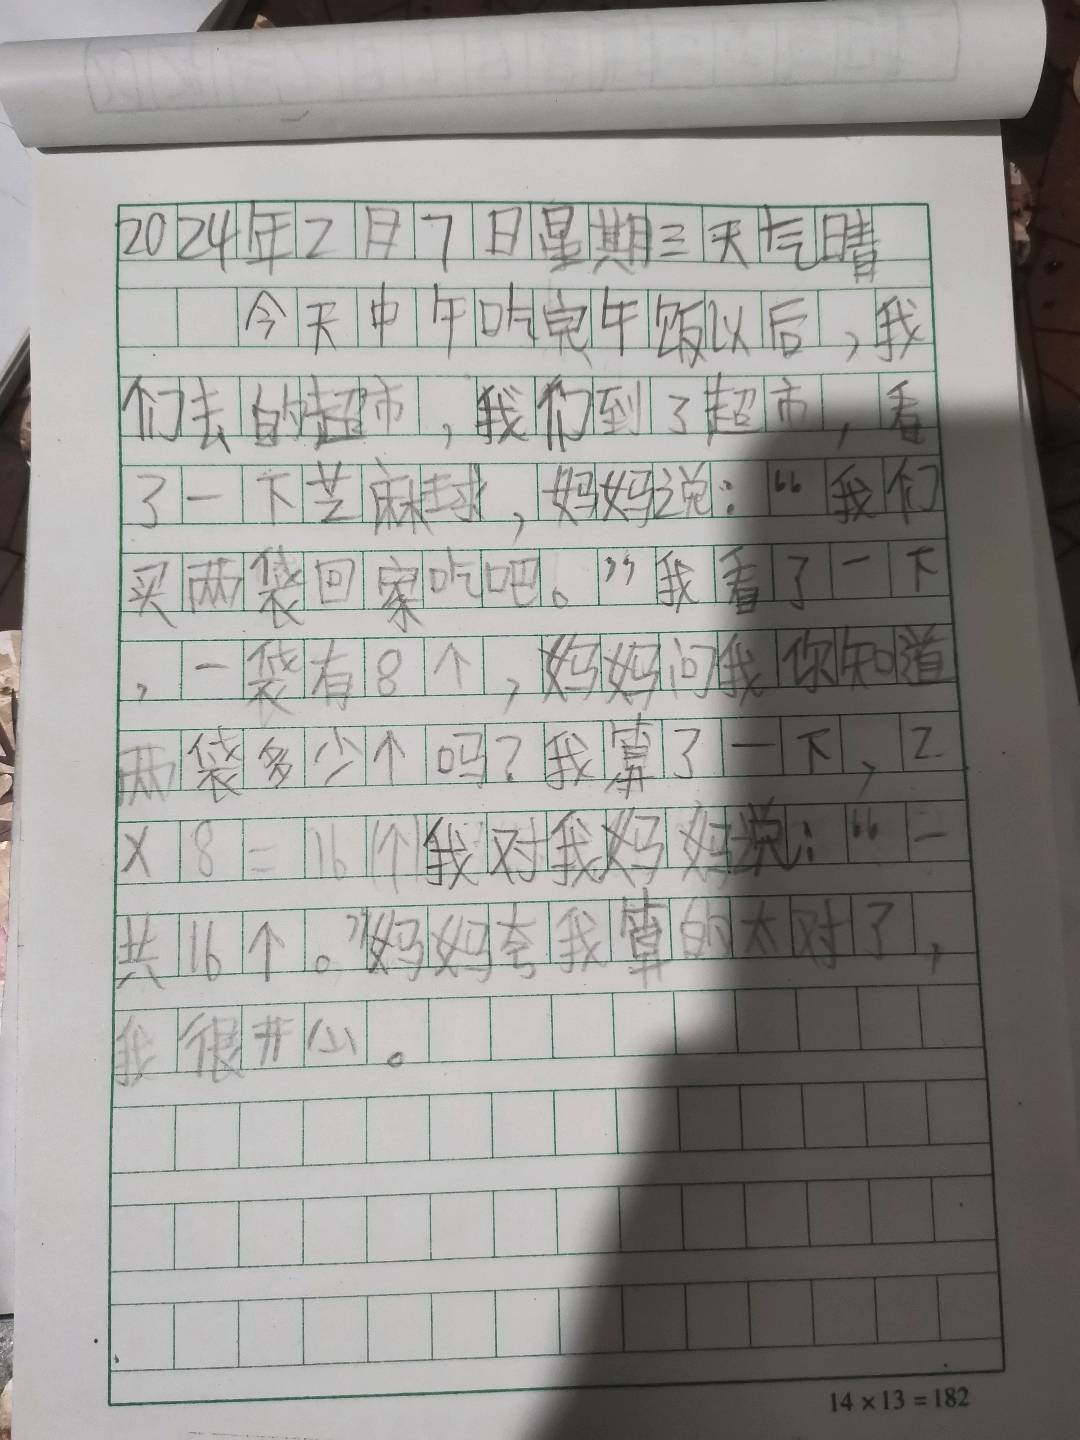 2024年2月7日星期三天气晴
今天中午吃完午饭以后,我
们去的超市,我们到了超市,看
了一下芝麻球,妈妈说:“我们
买两袋回家吃吧。”我看了一下
,一袋有8个,妈妈问我你知道
两袋多少个吗?我算了一下,2
×8=16(个)我对我妈妈说:“一
共16个。”妈妈夸我算的太对了,
我很开心。
14×13=182